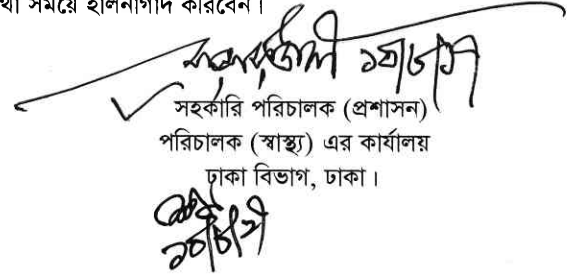 থা সময়ে হালনাগাদ করিবেন।
সহকারি পরিচালক (প্রশাসন)
পরিচালক (স্বাস্থ্য) এর কার্যালয়
ঢাকা বিভাগ, ঢাকা।